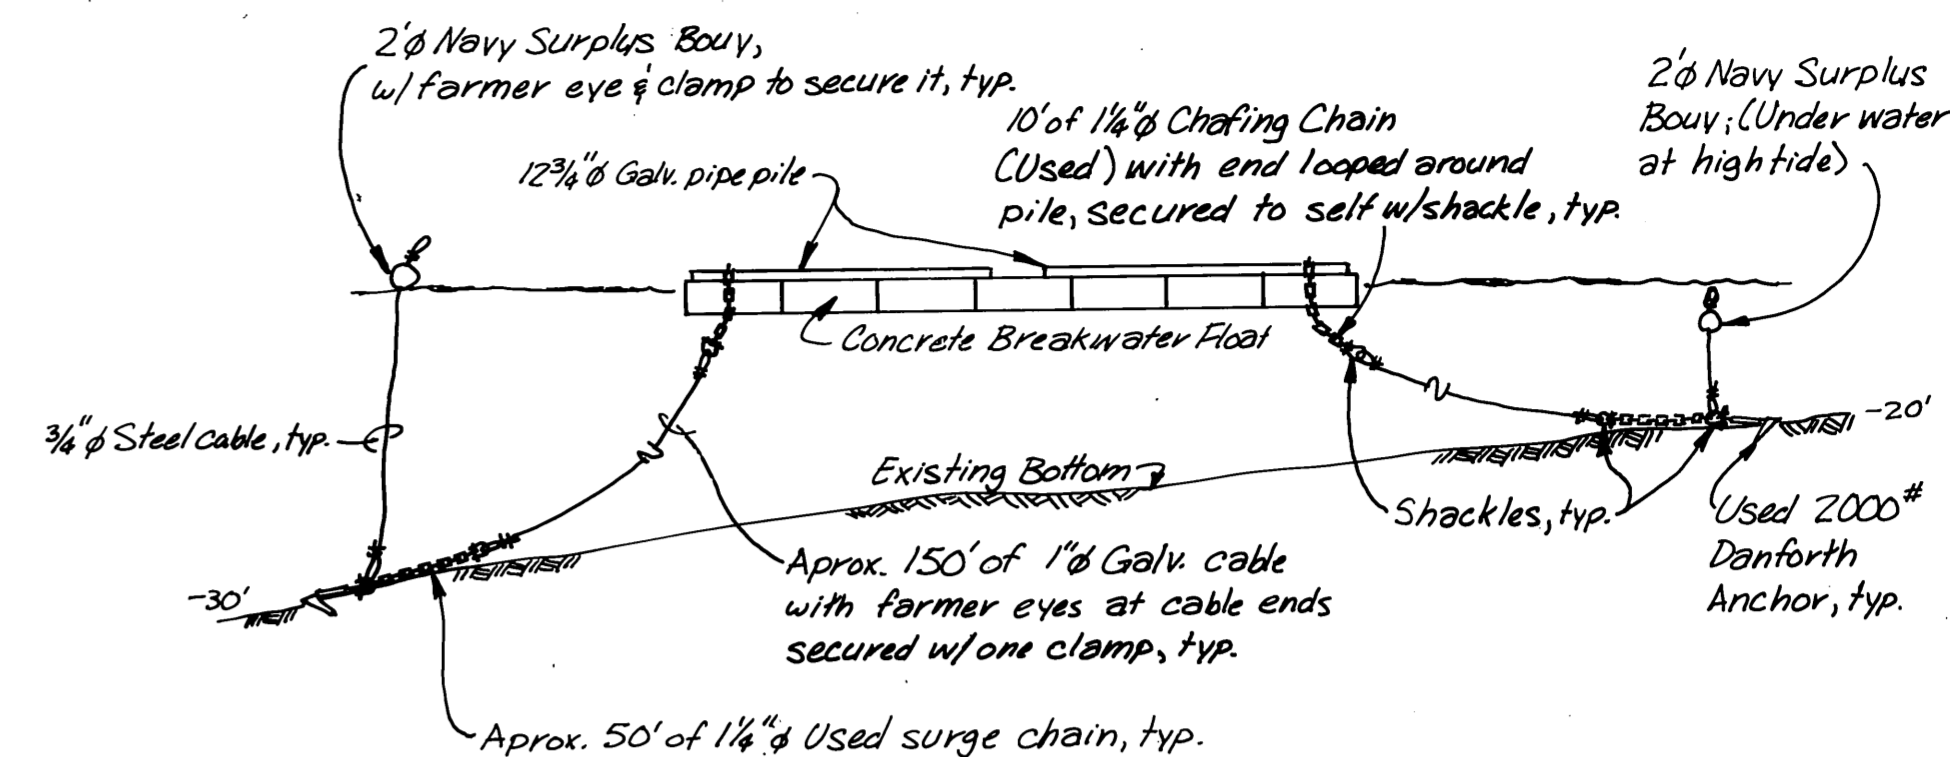 2'ø Navy Surplus Bouy,
w/ farmer eye & clamp to secure it, typ.
12¾"ø Galv. pipe pile
10' of 1¼"ø Chafing Chain
(Used) with end looped around
pile, secured to self w/shackle, typ.
2'ø Navy Surplus
Bouy; (Under water
at high tide)
Concrete Breakwater Float
¾"ø Steel cable, typ.
-20'
Existing Bottom
Shackles, typ.
Used 2000#
Danforth
Anchor, typ.
-30'
Aprox. 150' of 1"ø Galv. cable
with farmer eyes at cable ends
secured w/one clamp, typ.
Aprox. 50' of 1¼"ø Used surge chain, typ.